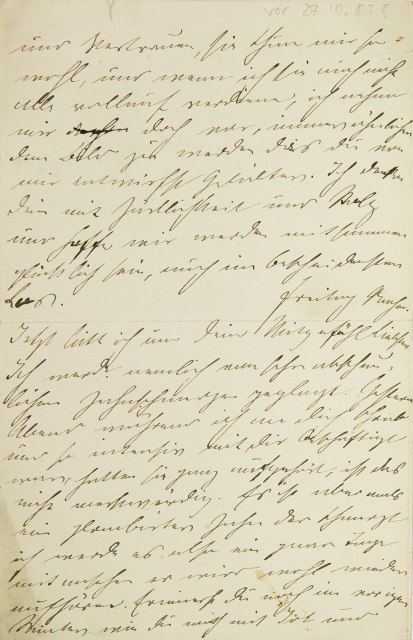 vor 27.10.83?
und Vertrauen, sie thun mir so
wohl, und wenn ich sie auch nicht
alle vollauf verdiene, ich nehme
mir doch vor, immer ähnlicher
dem Bild zu werden das du von
mir entwirfst Geliebter. Ich denke
dein mit Zärtlichkeit und Stolz
und hoffe wir werden mitsammen
glücklich sein, auch im bescheidensten
Los.
Freitag
Jetzt bitt ich um dein Mitgefühl Liebster
Ich werde nemlich von sehr abscheu-
lichen Zahnschmerzen geplagt. Gestern
Abend während ich an dich schrieb
und so intensiv mit dir beschäftigt
war, hatten sie ganz aufgehört, ist das
nicht merkwürdig. Es ist aber
ein plombirter Zahn der schmerzt
ich werde es also ein paar Tage
mit ansehen er wird wohl wieder
aufhören. Erinnerst du noch im vorigen
Winter, wie du mich mit Jod und